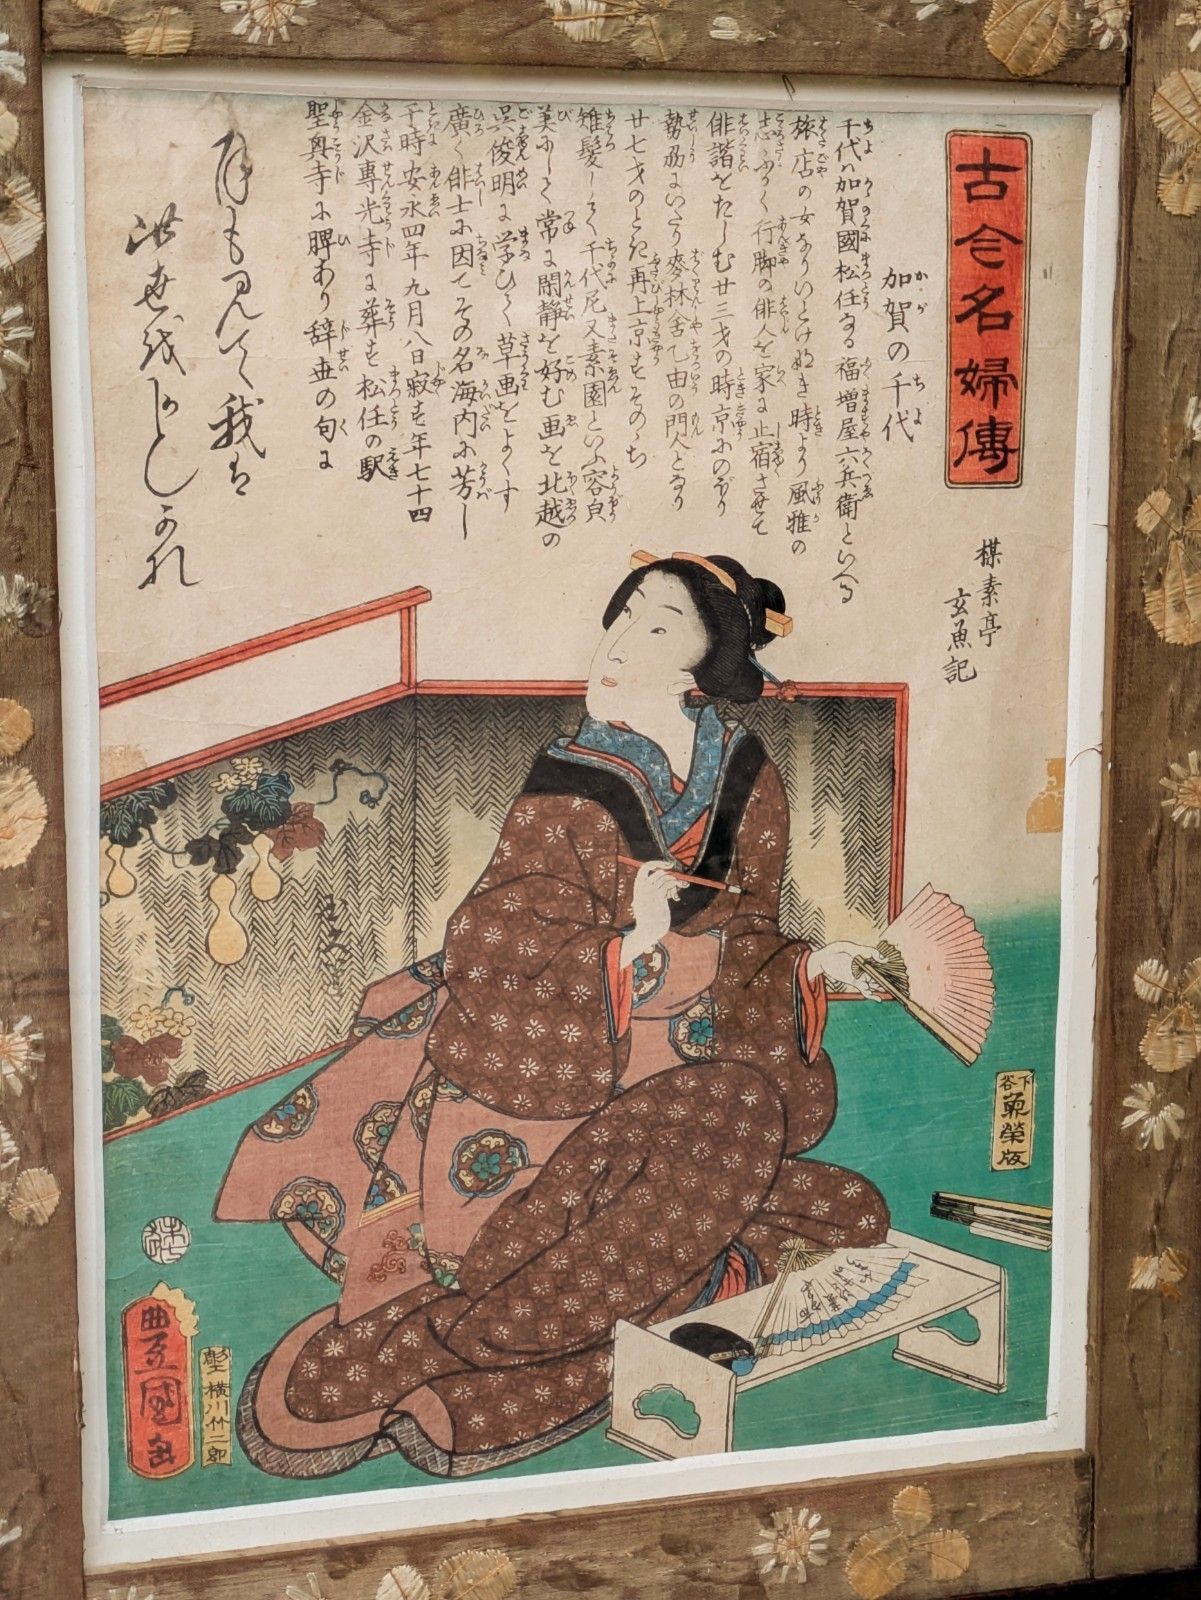 古今名婦傳
加賀の千代
千代ハ加賀國松任なる福増屋六兵衛といへる
旅店の女なりいとけなき時より風雅の
志ふかく行脚の俳人を家に止宿させて
俳諧をたしむ廿三才の時京にのぼり
勢州にいたり麥林舎乙由の門人となり
廿七才のとき再上京すそのゝち
雉髪して千代尼又素園といふ容貞
美にして常に閑静を好む画を北越の
呉俊明に学ひて草画をよくす
廣く俳士に因てその名海内に芳し
于時安永四年九月八日寂す年七十四
金沢專光寺に葬す松任の駅
聖興寺に碑あり辞世の句に
月も見て我は
此世をかしくかな
楳素亭
玄魚記
下谷
魚榮版
豊国画
彫工 横川竹二郎